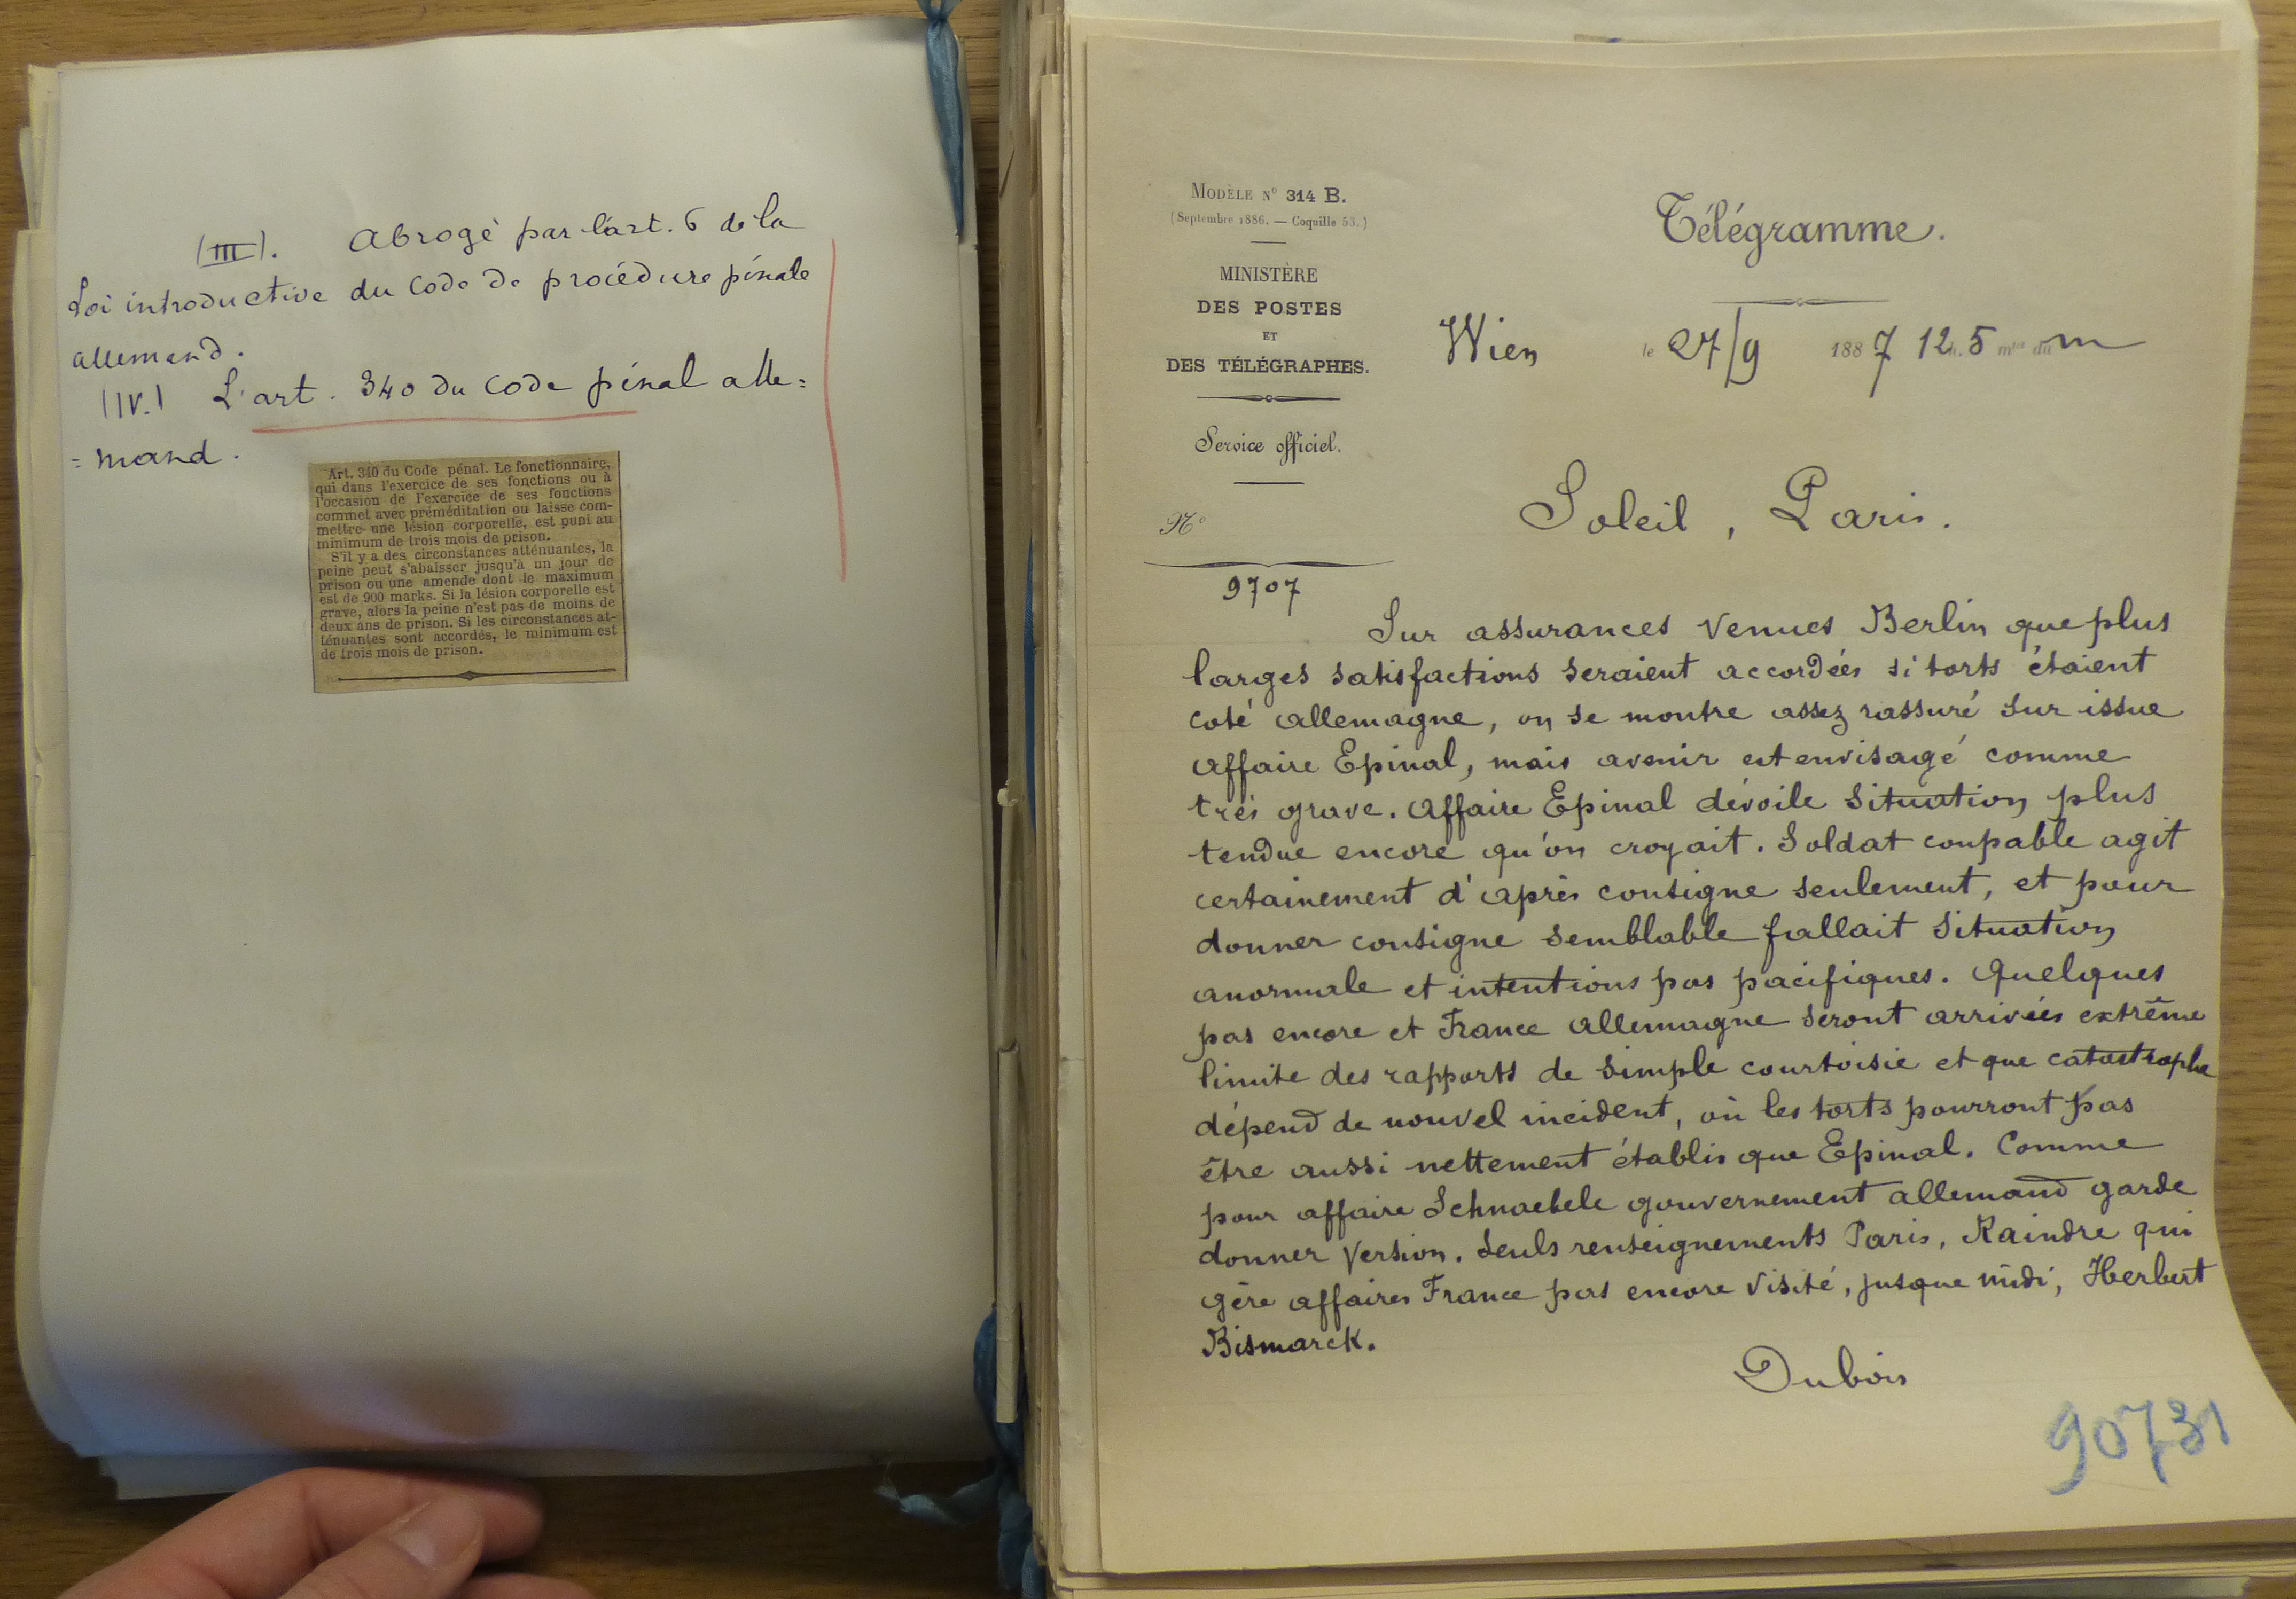 (III). Abrogé par l'art. 6 de la
Loi introductive du Code de procédure pénale
allemand.
(IV.) L'art. 340 du Code pénal alle=
=mand.
Art. 340 du Code pénal. Le fonctionnaire,
qui dans l'exercice de ses fonctions ou à
l'occasion de l'exercice de ses fonctions
commet avec préméditation ou laisse com-
mettre une lésion corporelle, est puni au
minimum de trois mois de prison.
S'il y a des circonstances atténuantes, la
peine peut s'abaisser jusqu'à un jour de
prison ou une amende dont le maximum
est de 900 marks. Si la lésion corporelle est
grave, alors la peine n'est pas de moins de
deux ans de prison. Si les circonstances at-
ténuantes sont accordés, le minimum est
de trois mois de prison.
MODÈLE N° 314 B.
(Septembre 1886. — Coquille 53.)
MINISTÈRE
DES POSTES
ET
DES TÉLÉGRAPHES.
Service officiel.
N°
9707
Télégramme.
Wien le 27/9 1887 12h. 5 mtes du m
Soleil, Paris.
Sur assurances venues Berlin que plus
larges satisfactions seraient accordées si torts étaient
coté allemagne, on se montre assez rassuré sur issue
affaire Epinal, mais avenir est envisagé comme
très grave. Affaire Epinal dévoile situation plus
tendue encore qu'on croyait. Soldat coupable agit
certainement d'après consigne seulement, et pour
donner consigne semblable fallait situation
anormale et intentions pas pacifiques. Quelques
pas encore et France allemagne seront arrivées extrême
limite des rapports de simple courtoisie et que catastrophe
dépend de nouvel incident, où les torts pourront pas
être aussi nettement établis que Epinal. Comme
pour affaire Schnaebele gouvernement allemand garde
donner version. Seuls renseignements Paris, Raindre qui
gère affaires France pas encore visité, jusque midi, Herbert
Bismarck.
Dubois
90731